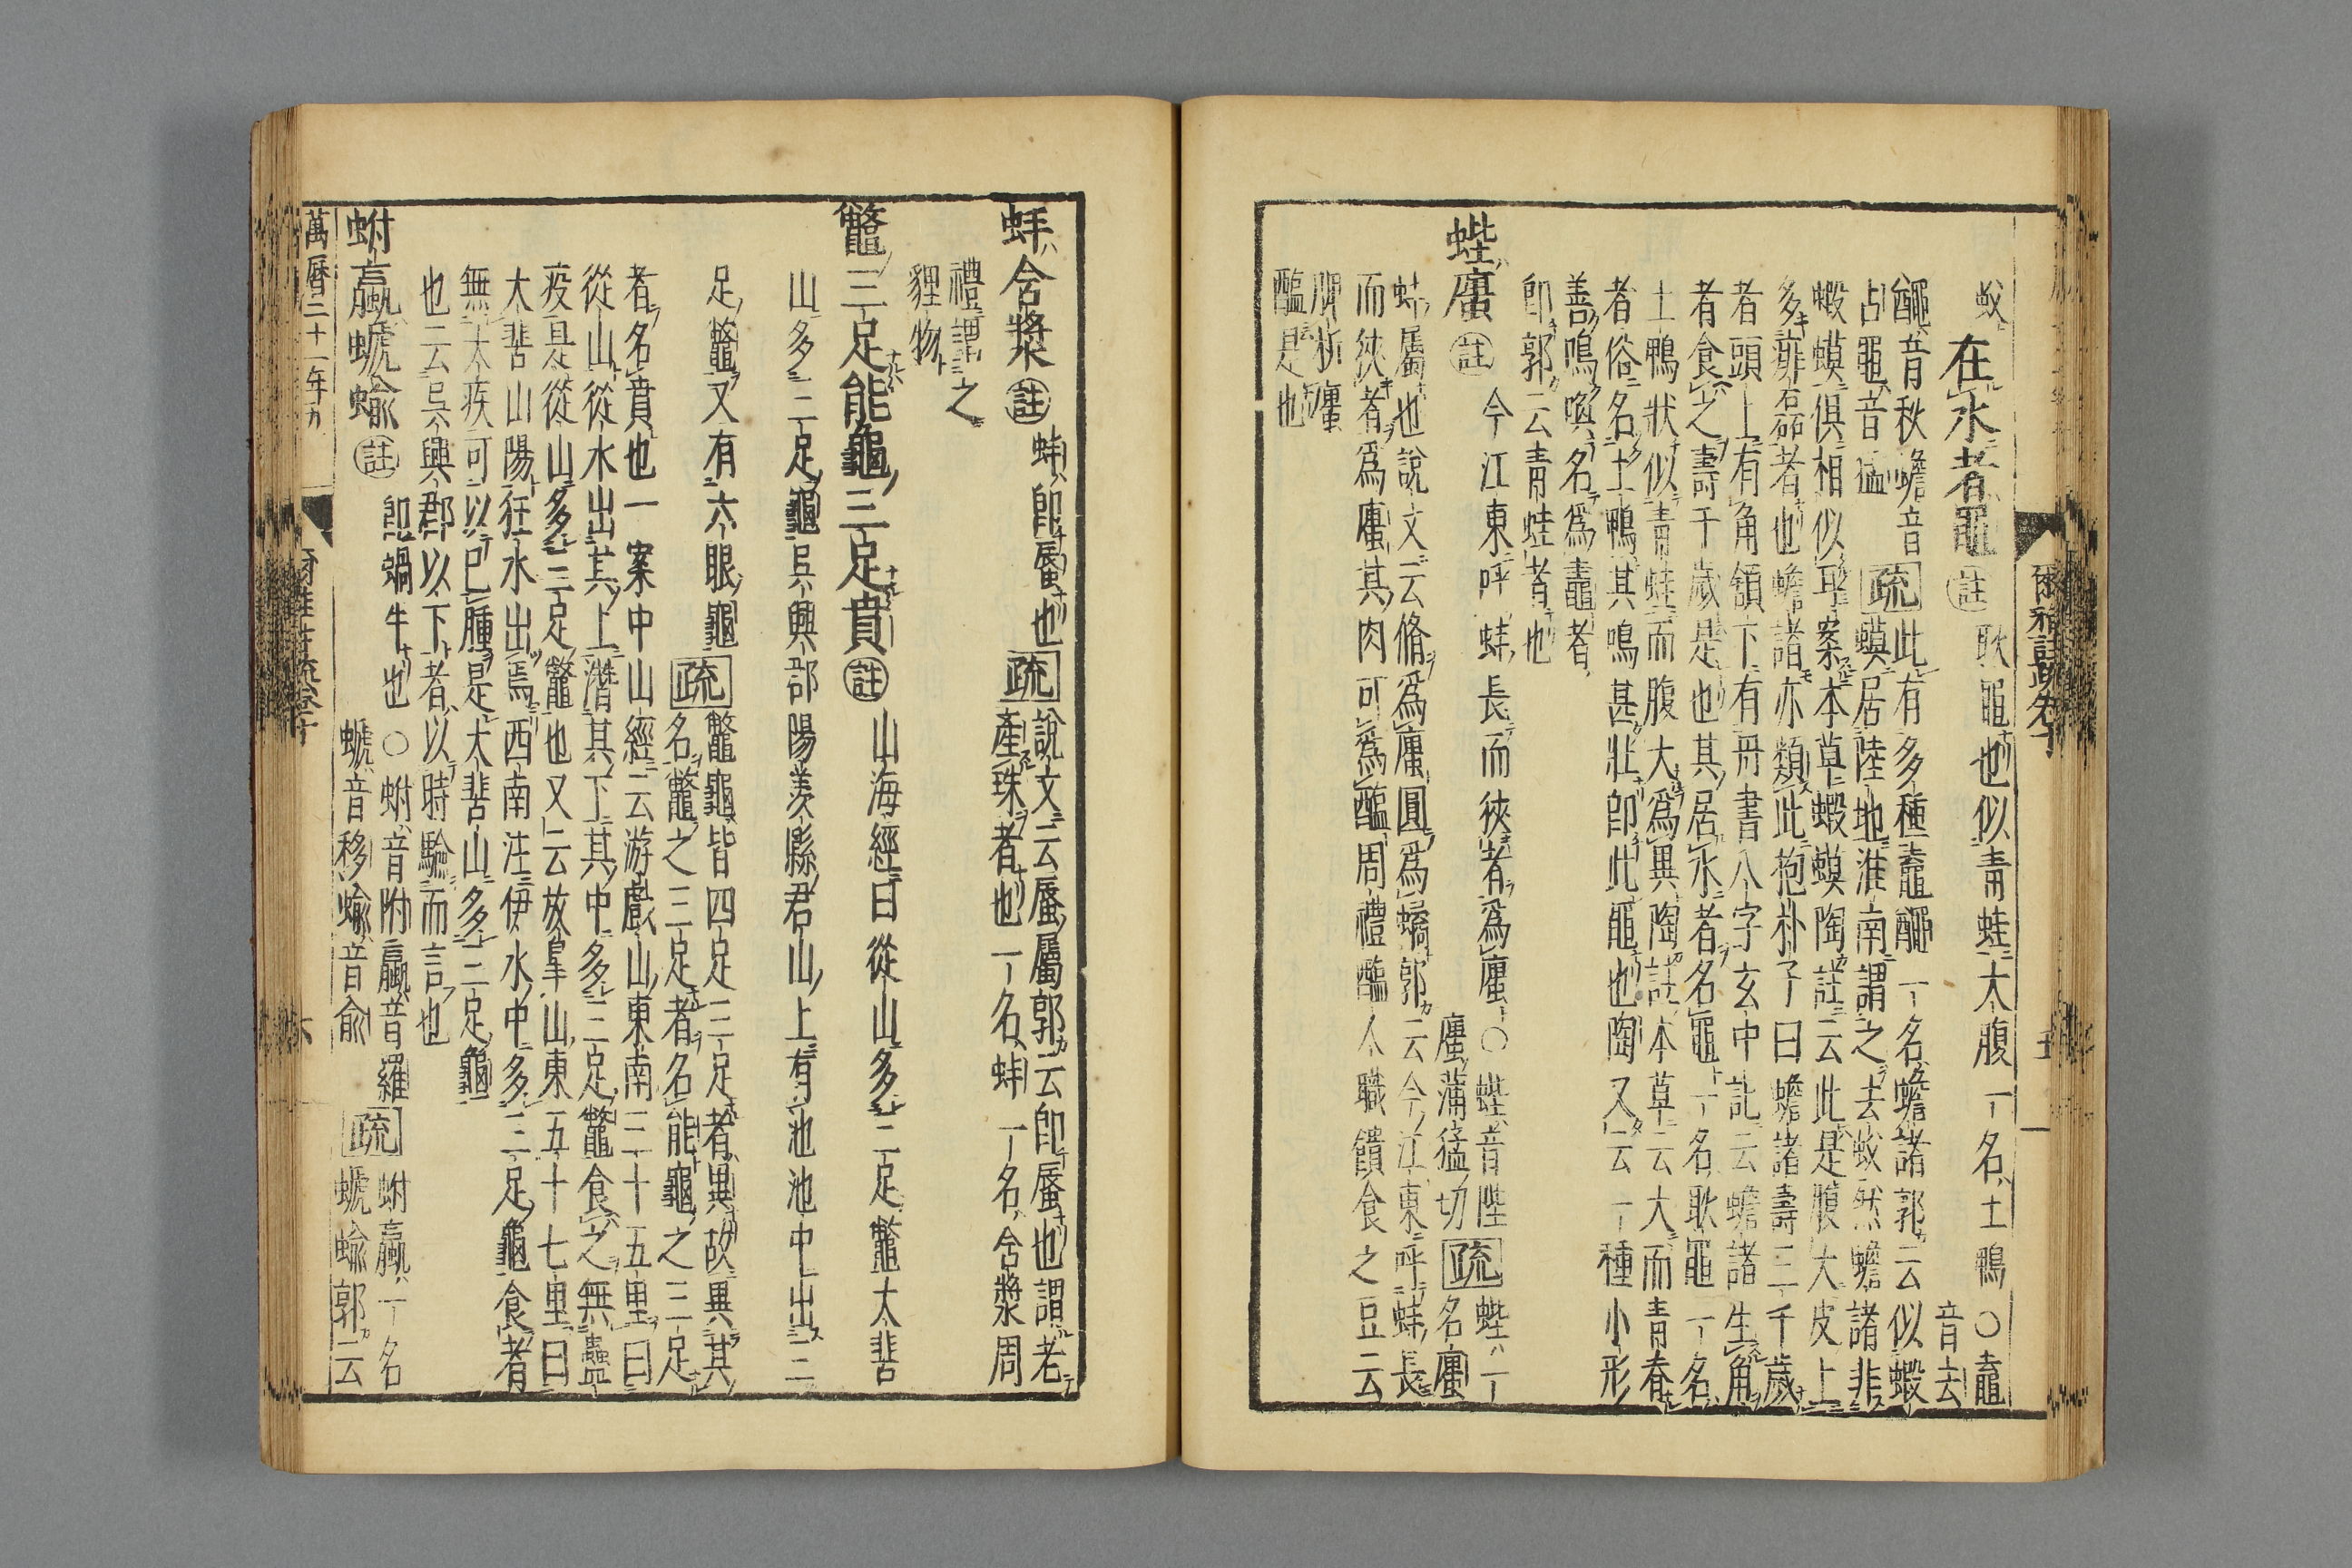 爾雅註疏卷十
蚥
在水者黽
註
耿黽也似青蛙大腹一名土鴨
○鼀
音去
䵷音秋蟾音
占黽音猛
疏
此有多種鼀䵷一名蟾諸郭云似蝦
蟆居陸地淮南謂之去蚥然蟾諸非
蝦蟆俱相似耳案本草蝦蟆陶註云此是腹大皮上
多痱磊者也蟾諸亦類此抱朴子曰蟾諸壽三千歲
者頭上有角頷下有丹書八字玄中記云蟾諸生角
者食之壽千歲是也其居水者名黽一名耿黽一名
土鴨狀似青蛙而腹大為異陶註本草云大而青脊
者俗名土鴨其鳴甚壯即此黽也陶又云一種小形
善鳴喚名為鼃者
即郭云青蛙者也
蜌螷
註
今江東呼蚌長而狹者為螷
○蜌音陛
螷蒲猛切
疏
蜌一
名螷
蚌屬也說文云脩為螷圓為蠣郭云今江東呼蚌長
而狹者為螷其肉可為醢周禮醢人職饋食之豆云
脾析螷
醢是也
蚌含漿
註
蚌即蜃也
疏
說文云蜃屬郭云即蜃也謂老
產珠者也一名蚌一名含漿周
禮謂之
貍物
鼈三足能龜三足賁
註
山海經曰從山多三足鼈大苦
山多三足龜吳興郡陽羨縣君山上有池池中出三
足鼈又有六眼龜
疏
鼈龜皆四足三足者異故異其
名鼈之三足者名能龜之三足
者名賁也一案中山經云游戲山東南三十五里曰
從山從水出其上潛其下其中多三足鼈食之無蠱
疫是從山多三足鼈也又云放皋山東五十七里曰
大苦山陽狂水出焉西南注伊水中多三足龜食者
無大疾可以已腫是大苦山多三足龜
也云吳興郡以下者以時驗而言也
蚹蠃螔蝓
註
即蝸牛也
○蚹音附蠃音羅
螔音移蝓音俞
疏
蚹蠃一名
螔蝓郭云
萬曆二十一年刊
爾雅註疏卷十
六